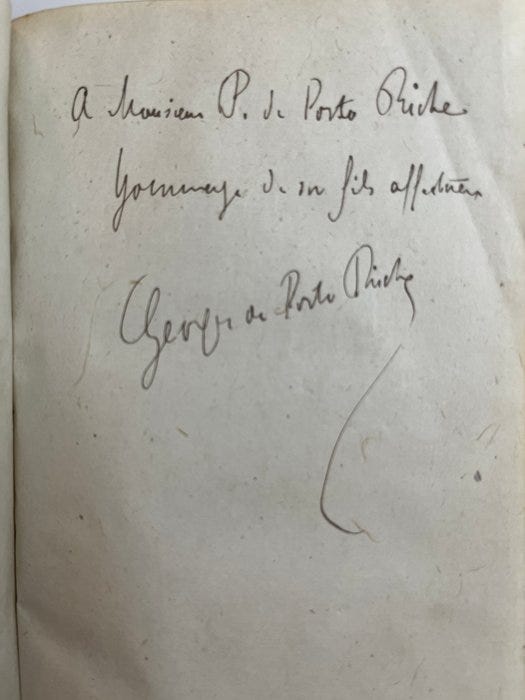 A Monsieur P. de Porto Riche
hommage de son fils affectueux
Georges de Porto Riche